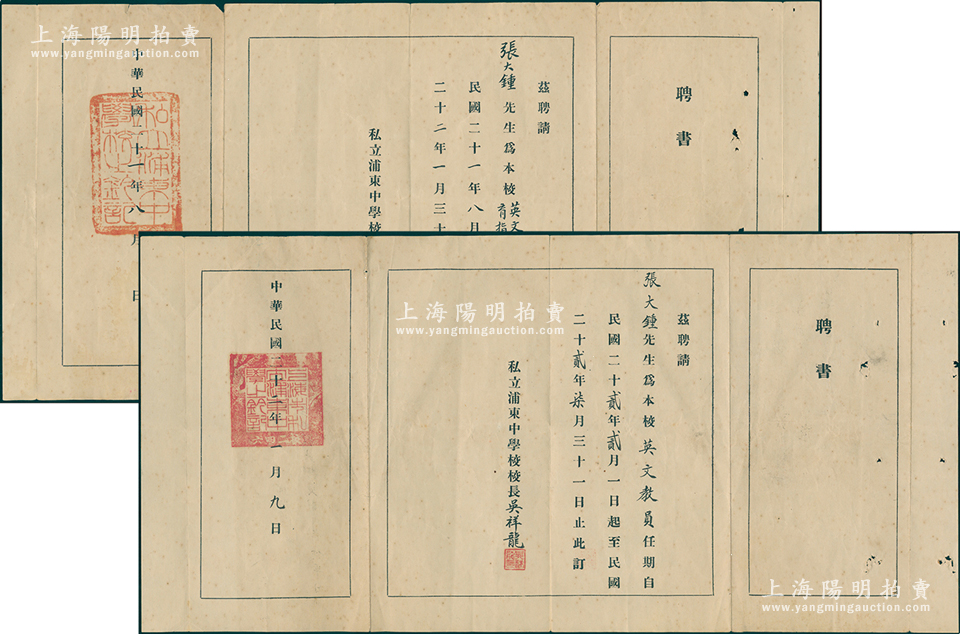 上海陽明拍賣
www.yangmingauction.com
聘書
茲聘請
張大鍾先生爲本校英文
育指
民國二十一年八月
二十二年一月三十
私立浦東中學校
中華民國二十一年八月 日
聘書
茲聘請
張大鍾先生爲本校英文教員任期自
民國二十貳年貳月一日起至民國
二十貳年柒月三十一日止此訂
私立浦東中學校校長吳祥龍
中華民國二十二年二月九日
上海陽明拍賣
www.yangmingauction.com
上海陽明拍賣
www.yangmingauction.com